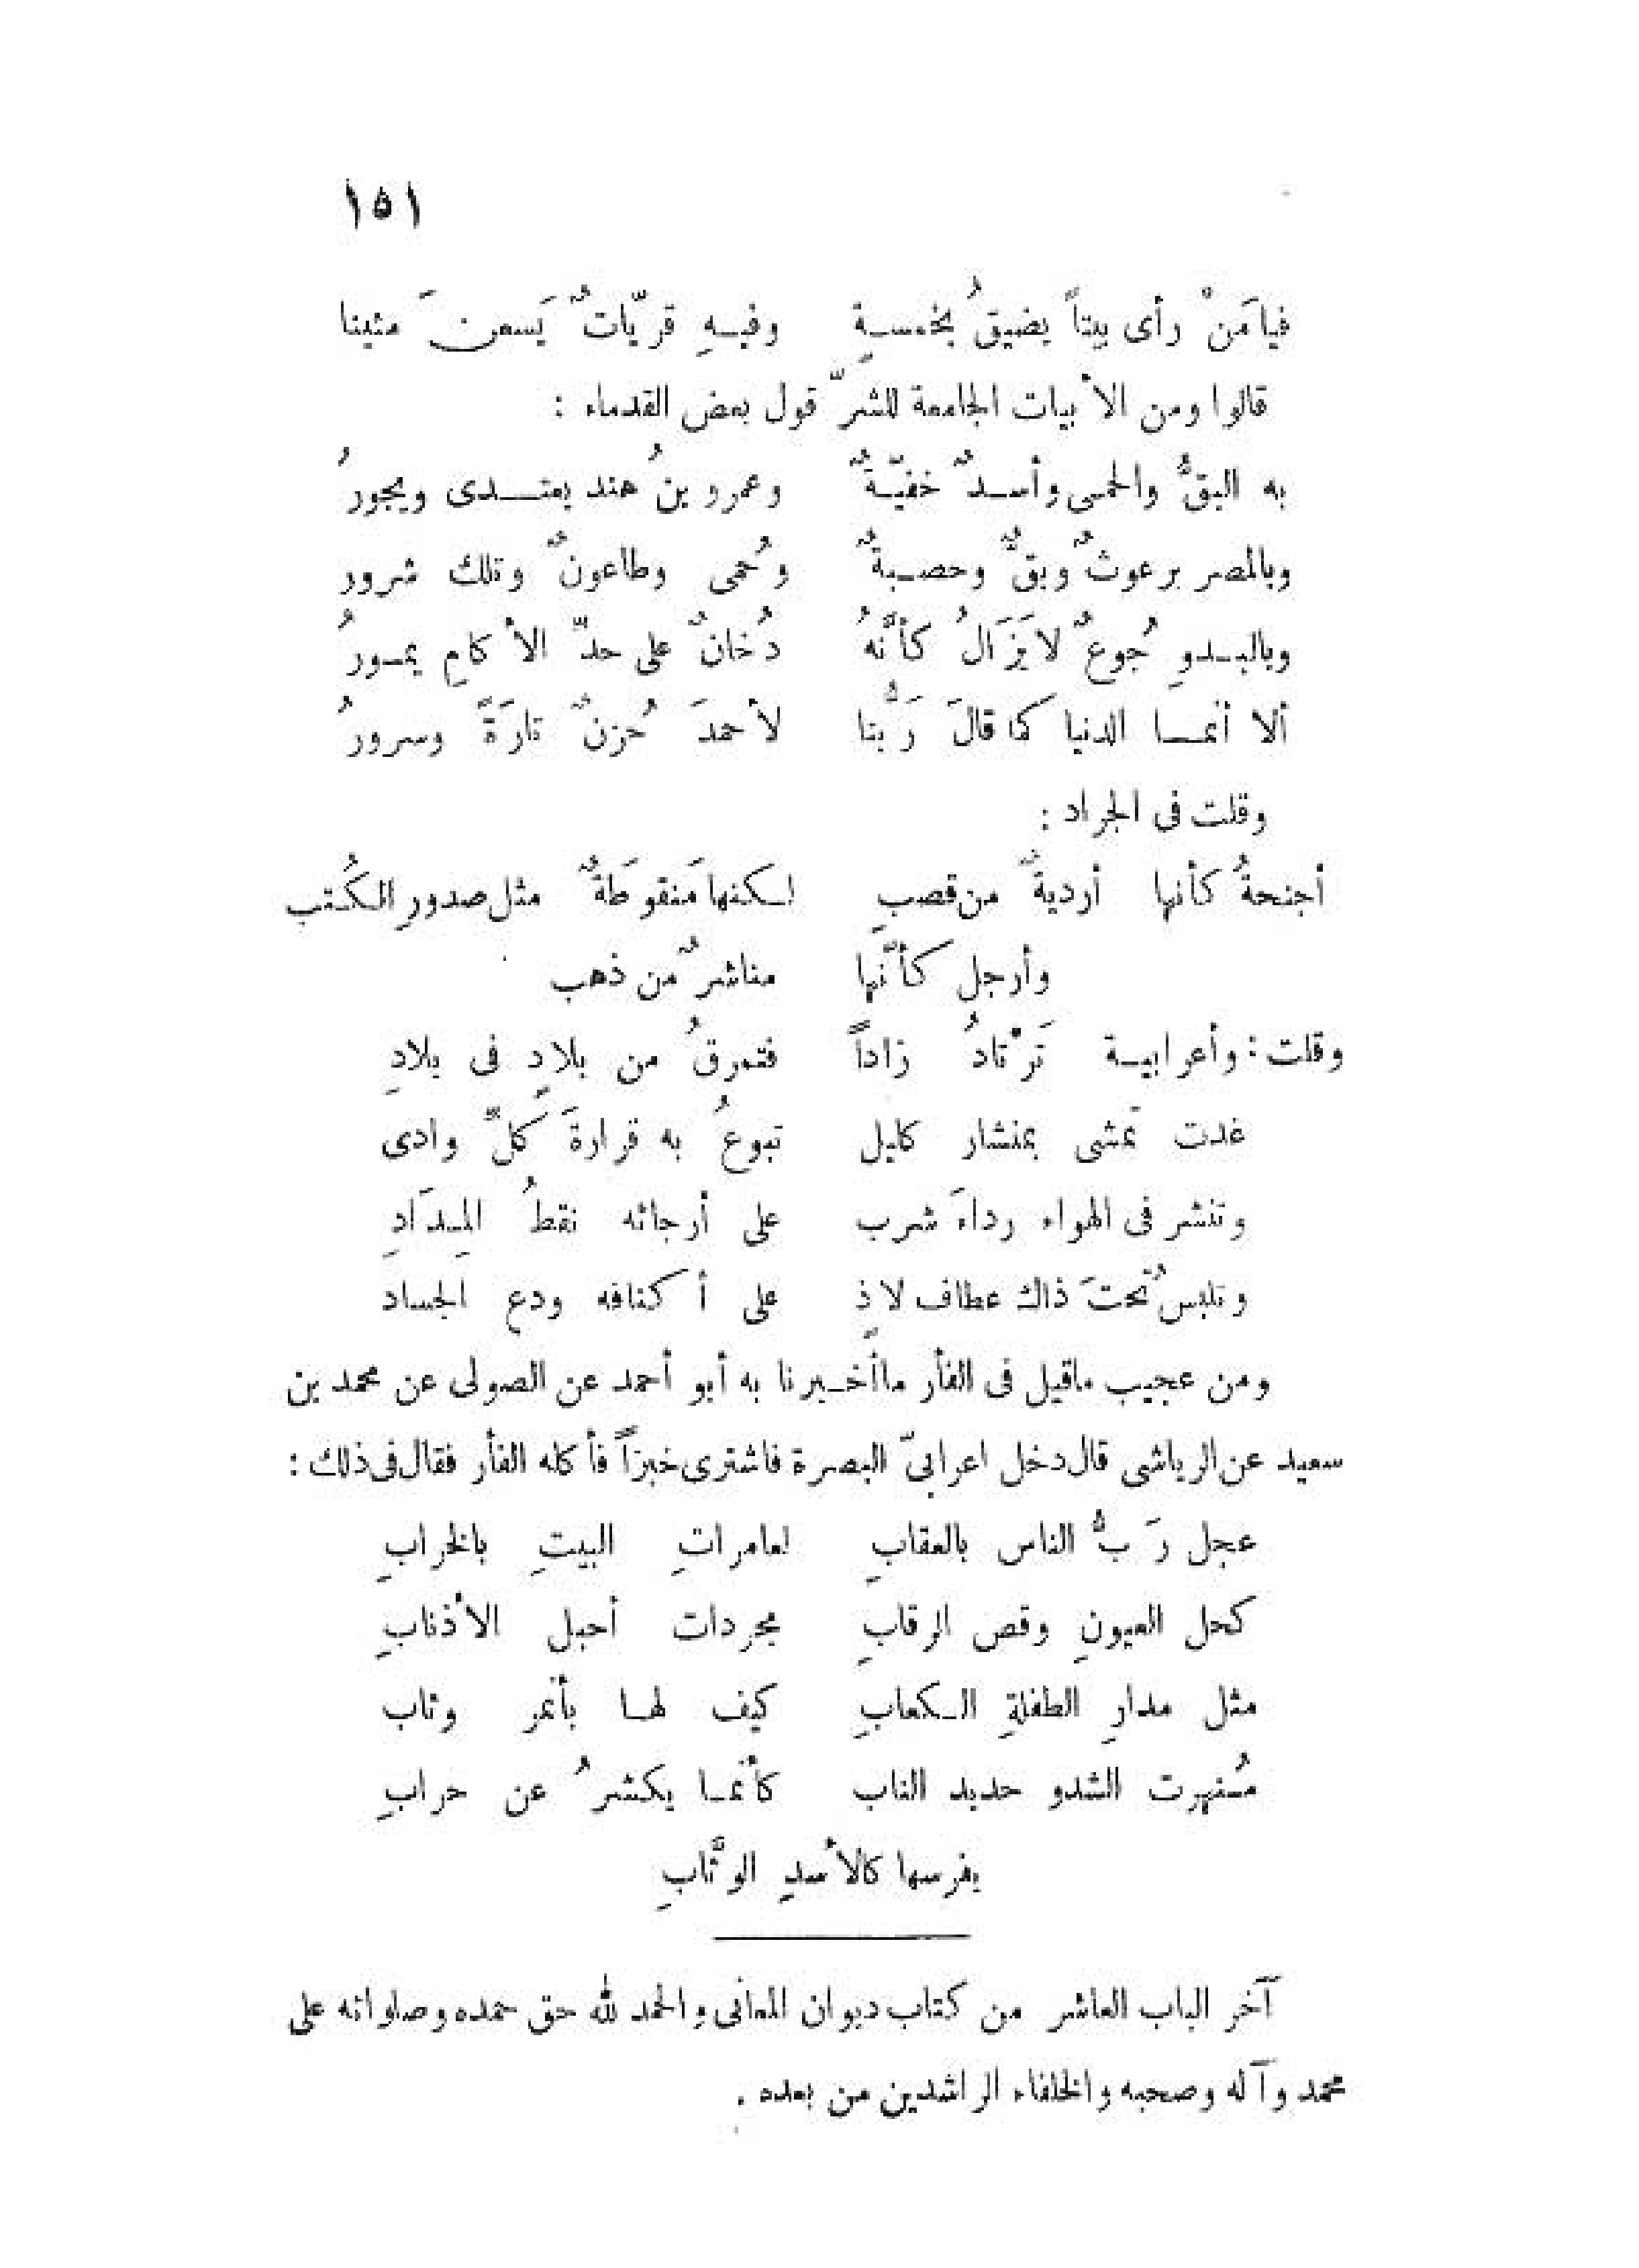 ١٥١
فيامَنْ رأى بيتاً يضيقُ بخمسةٍ وفيهِ قريّاتٌ يَسعنَ مئينا
قالوا ومن الأبيات الجامعة للشرّ قول بعض القدماء :
به البقُّ والحمى وأسدٌ خفيّةٌ وعمرو بنُ هند يعتدى ويجورُ
وبالمصر برعوثٌ وبقٌّ وحصبةٌ وحُمى وطاعونٌ وتلك شرور
وبالبدوِ جُوعٌ لايَزَالُ كأنَّهُ دُخانٌ على حدّ الأكامِ يمورُ
ألا أنما الدنيا كما قالَ رَبُّنا لأحمدَ حُزنٌ تارَةً وسرورُ
وقلت فى الجراد :
أجنحةٌ كأنها أرديةٌ من قصبِ لكنها مَنقوطَةٌ مثل صدورِ الكُتب
وأرجل كأنّها مناشرٌ من ذهب
وقلت : وأعرابية تَرْتادُ زاداً فتمرقُ من بلادٍ فى بلادِ
غدت تمشى بمنشار كليل تبوعُ به قرارةَ كلّ وادى
وتنشر فى الهواء رداءَ شرب على أرجائه نقطُ المِدَادِ
وتلبسُ تحتَ ذاك عطاف لاذٍ على أكنافه ودع الجساد
ومن عجيب ماقيل فى الفأر ماأخبرنا به أبو أحمد عن الصولى عن محمد بن
سعيد عن الرياشى قال دخل اعرابىّ البصرة فاشترى خبزاً فأكله الفأر فقال فى ذلك :
عجل رَبُّ الناس بالعقابِ لعامراتِ البيتِ بالخرابِ
كحل العيونِ وقص الرقابِ مجردات أحبل الأذنابِ
مثل مدارِ الطفلةِ الكعابِ كيف لها بأنمر وثاب
مُنهرت الشدو حديد الناب كأنما يكشرُ عن حرابِ
يفرسها كالأسدِ الوثَّابِ
آخر الباب العاشر من كتاب ديوان المعانى والحمد لله حق حمده وصلواته على
محمد وآله وصحبه والخلفاء الراشدين من بعده .